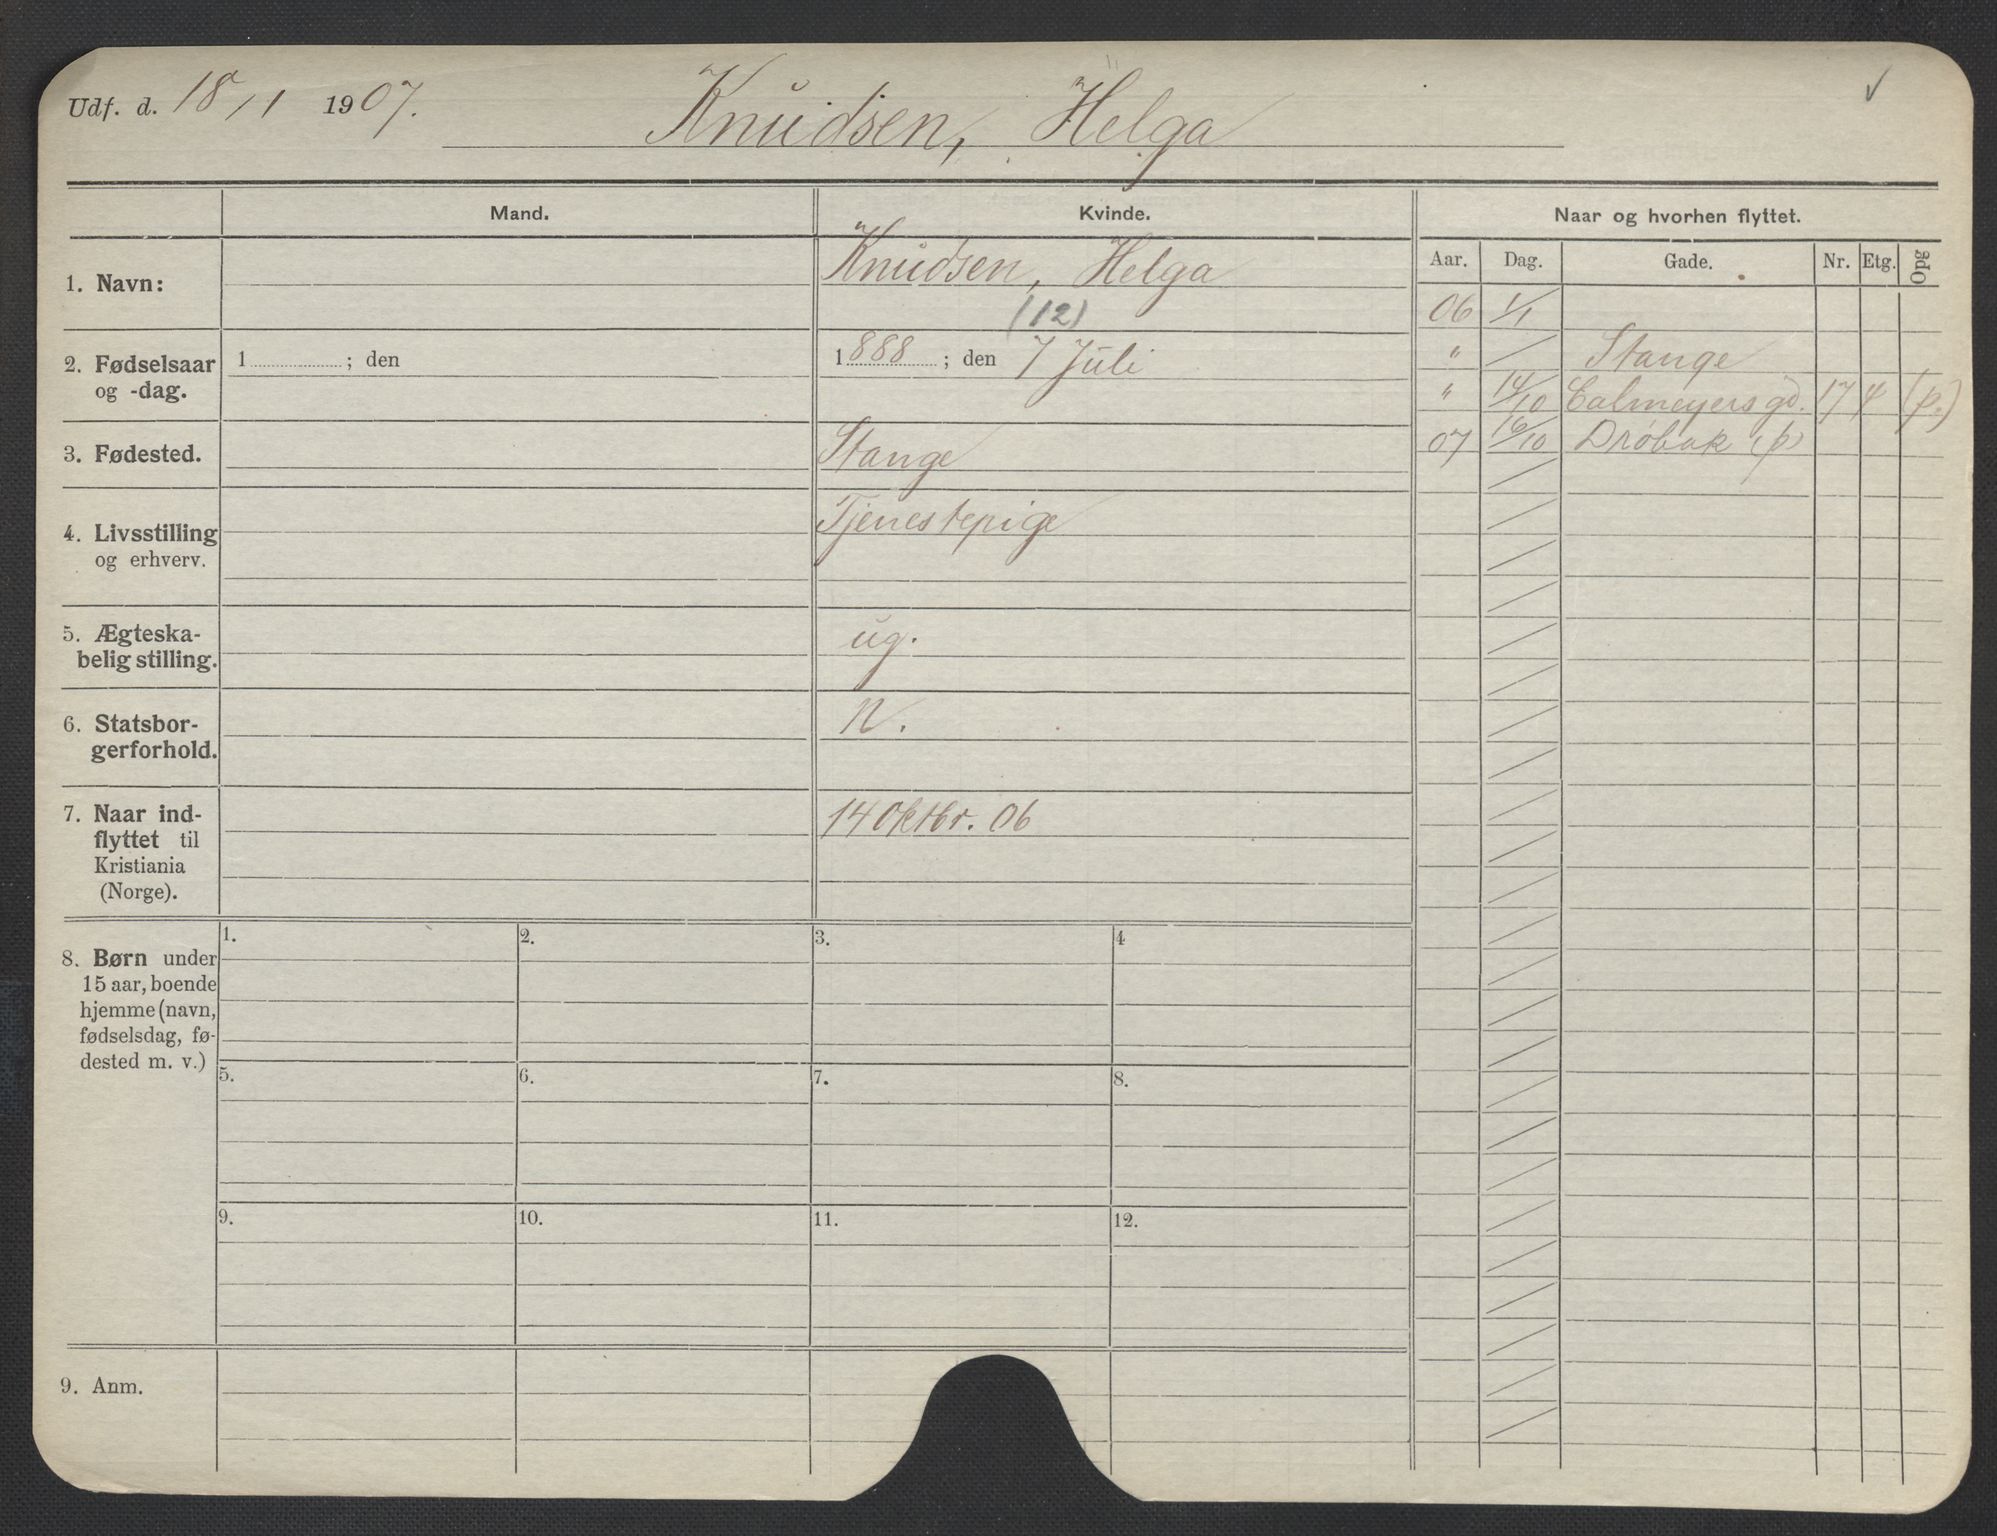 Udf. d. 18/1 1907.
Knudsen, Helga
Mand. Kvinde. Naar og hvorhen flyttet.
Aar. Dag. Gade. Nr. Etg. Opg
1. Navn: Knudsen, Helga
(12)
2. Fødselsaar og -dag. 1 ; den 1888 ; den 7 Juli
3. Fødested. Stange
4. Livsstilling og erhverv. Tjenestepige
5. Ægteska-
belig stilling. ug.
6. Statsbor-
gerforhold. N.
7. Naar ind-
flyttet til
Kristiania
(Norge). 14 Oktbr. 06
06 1/1
" / Stange
" 14/10 Calmeyers gd. 17 4 (p.)
07 16/10 Drøbak (p)
8. Børn under
15 aar, boende
hjemme (navn,
fødselsdag, fø-
dested m. v.)
1. 2. 3. 4
5. 6. 7. 8.
9. 10. 11. 12.
9. Anm.